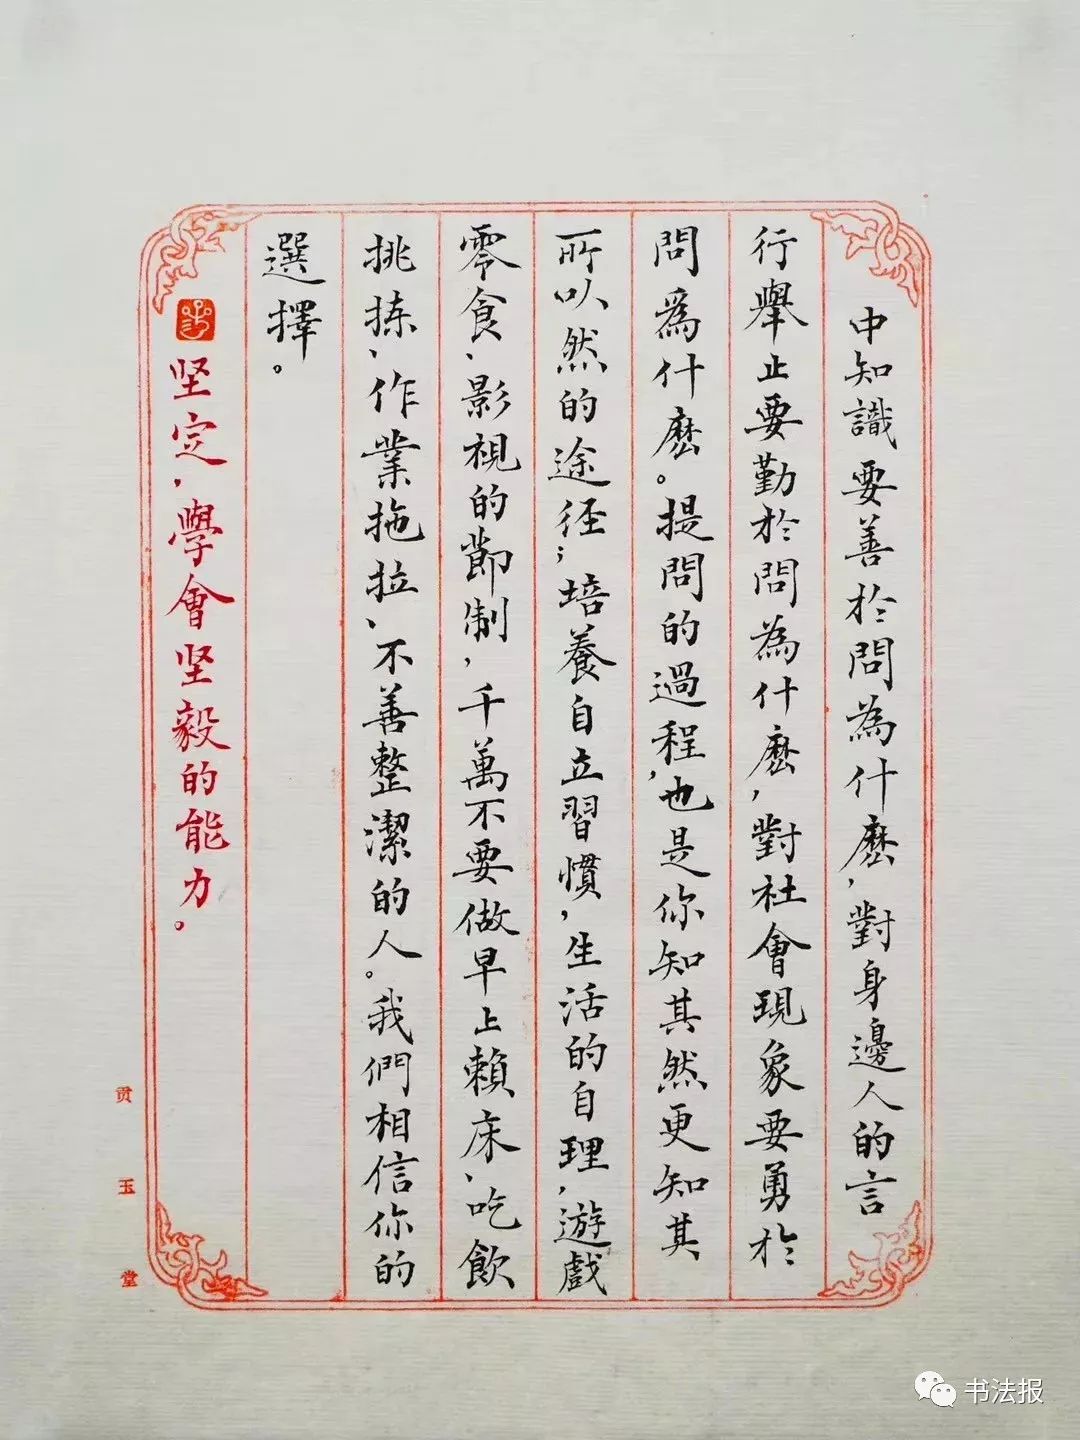 中知識要善於問為什麽，對身邊人的言
行舉止要勤於問為什麽，對社會現象要勇於
問爲什麽。提問的過程，也是你知其然更知其
所以然的途径；培養自立習慣，生活的自理，遊戲
零食、影視的節制，千萬不要做早上賴床、吃飲
挑拣、作業拖拉、不善整潔的人。我們相信你的
選擇。
坚定，學會坚毅的能力。
贡玉堂
书法报